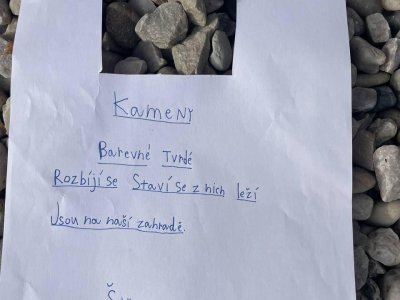 Kameny
Barevné Tvrdé
Rozbíjí se Staví se z nich leží
Jsou na naší zahradě.